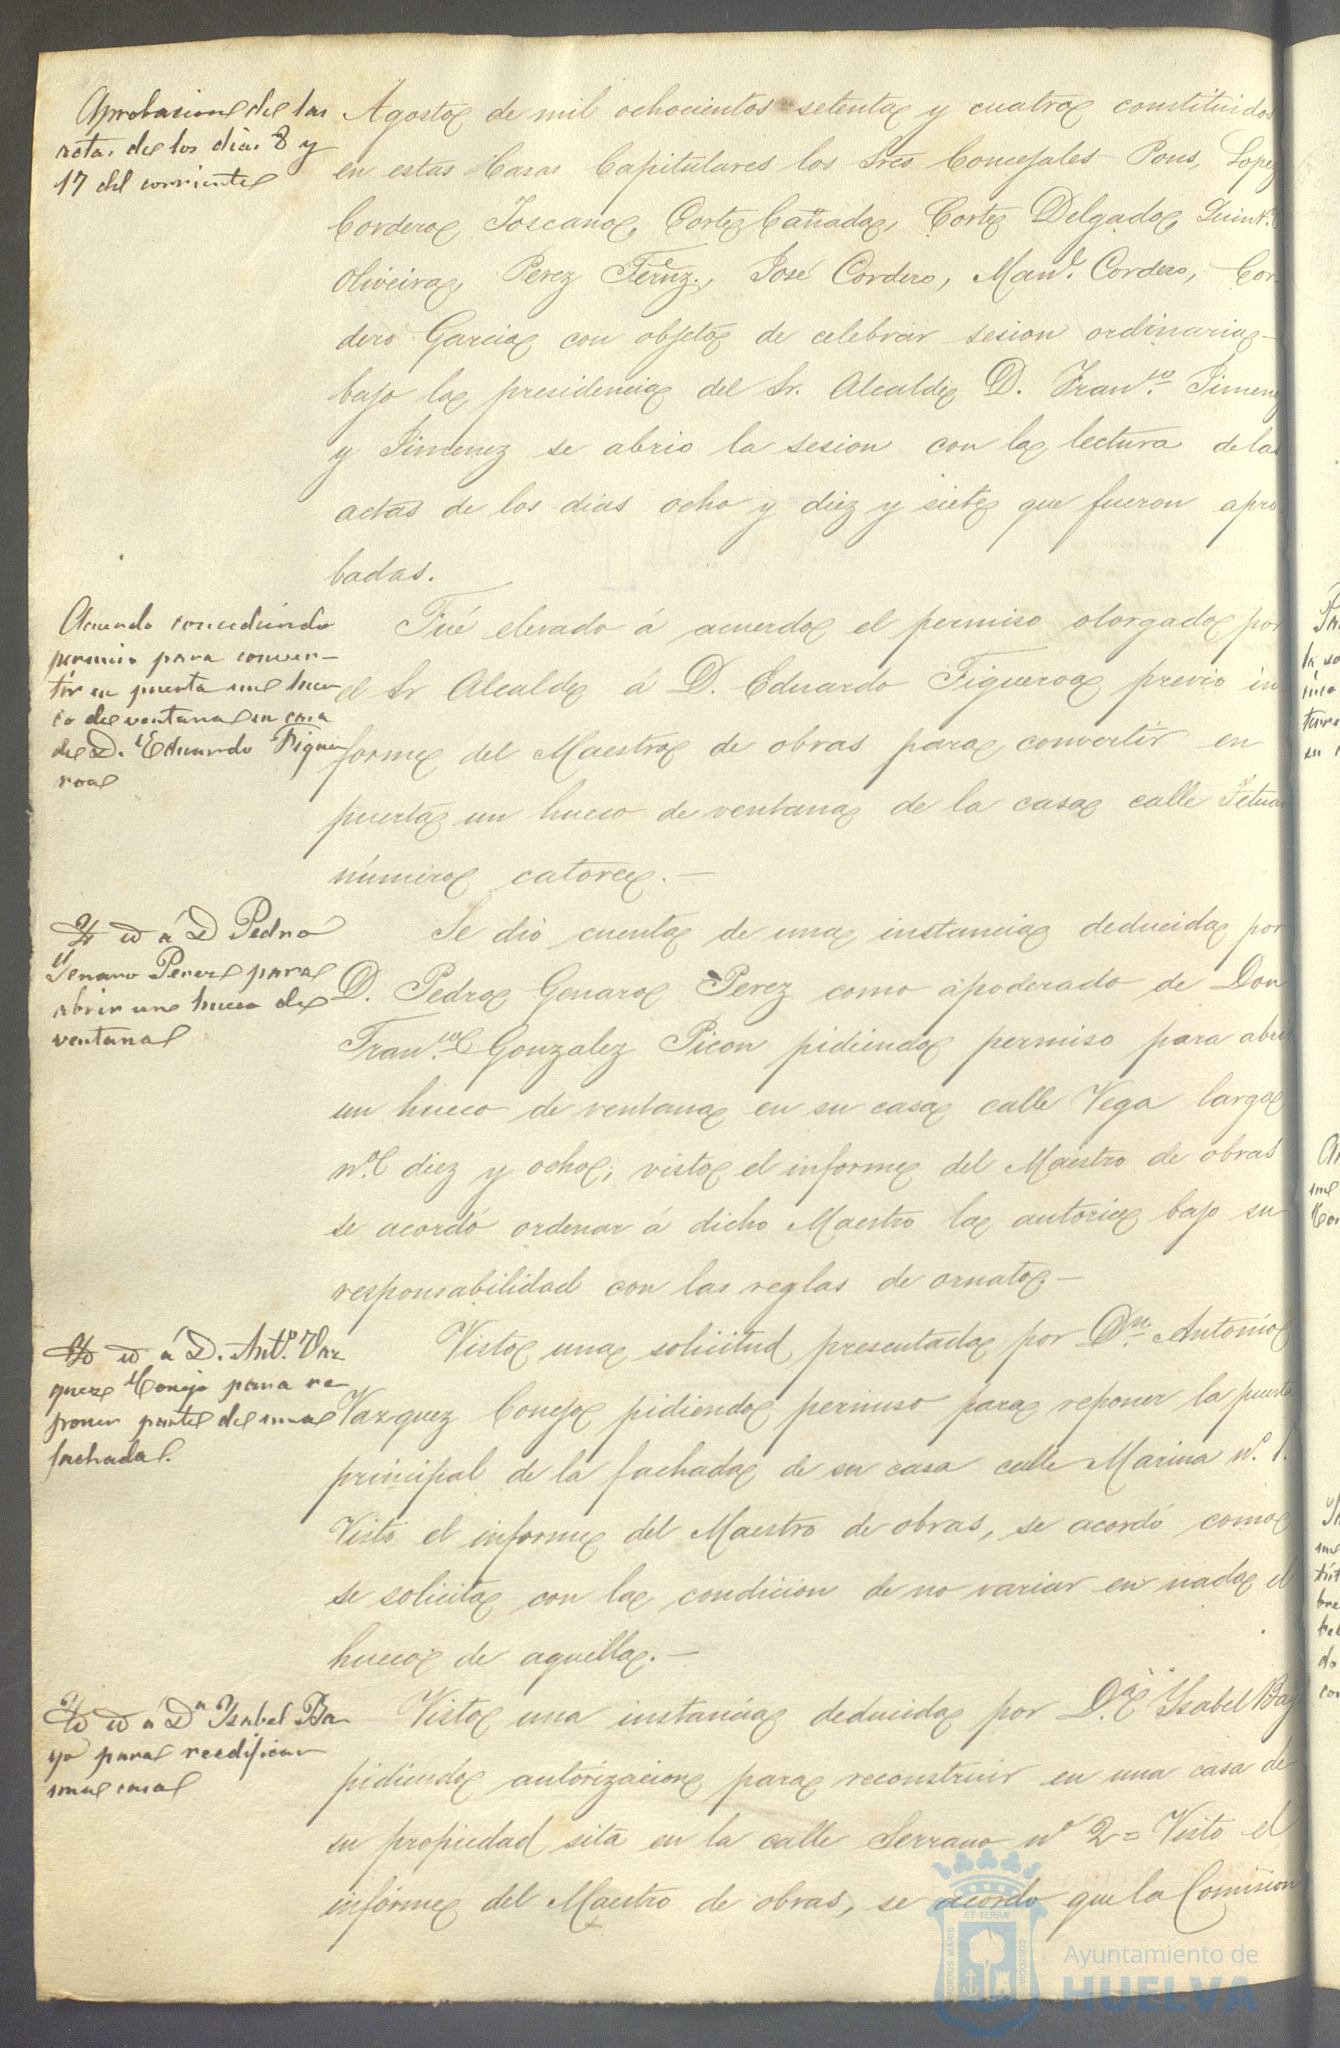 Aprobacione de las
actas de los dias 8 y
17 del corriente
Agosto de mil ochocientos setenta y cuatro constituidos
en estas Casas Capitulares los Sres Concejales Pons, Lopez
Cordero, Toscano, Cortez Cañada, Cortes Delgado, Quint.º
Oliveira, Perez Fernz., José Cordero, Man.l Cordero, Cor-
dero Garcia con objeto de celebrar sesion ordinaria
bajo la presidencia del Sr. Alcalde D. Fran.co Jimenez
y Jimenez se abrio la sesion con la lectura de las
actas de los dias ocho y diez y siete que fueron apro
badas.
Acuerdo concediendo
permiso para conver-
tir en puerta un hue
co de ventana en casa
de D. Eduardo Figue
roa
Fué elevado á acuerdo el permiso otorgado por
el Sr Alcalde á D. Eduardo Figueroa previo in
forme del Maestro de obras para convertir en
puerta un hueco de ventana de la casa calle Tetuan
número catorce.—
Yd id á D Pedro
Genaro Perez para
abrir un hueco de
ventana
Se dió cuenta de una instancia deducida por
D. Pedro Genaro Perez como apoderado de Don
Fran.co Gonzalez Picon pidiendo permiso para abrir
un hueco de ventana en su casa calle Vega larga
nº diez y ocho; visto el informe del Maestro de obras
se acordó ordenar á dicho Maestro la autorice bajo su
responsabilidad con las reglas de ornato—
Yd id á D. Ant.º Vaz
quez Conejo para re
poner parte de una
fachada.
Visto una solicitud presentada por Dn. Antonio
Vazquez Conejo pidiendo permiso para reponer la puerta
principal de la fachada de su casa calle Marina nº. 1.
Visto el informe del Maestro de obras, se acordó como
se solicita con la condicion de no variar en nada el
hueco de aquella.—
Yd id á Dª Ysabel Ba
yo para reedificar
una casa
Visto una instancia deducida por D.ª Ysabel Bayo
pidiendo autorizacion para reconstruir en una casa de
su propiedad sita en la calle Serrano nº 2= Visto el
informe del Maestro de obras, se acordo que la Comision
PORTUS MARIS
ET TERRÆ
CUSTODIA
Ayuntamiento de
HUELVA